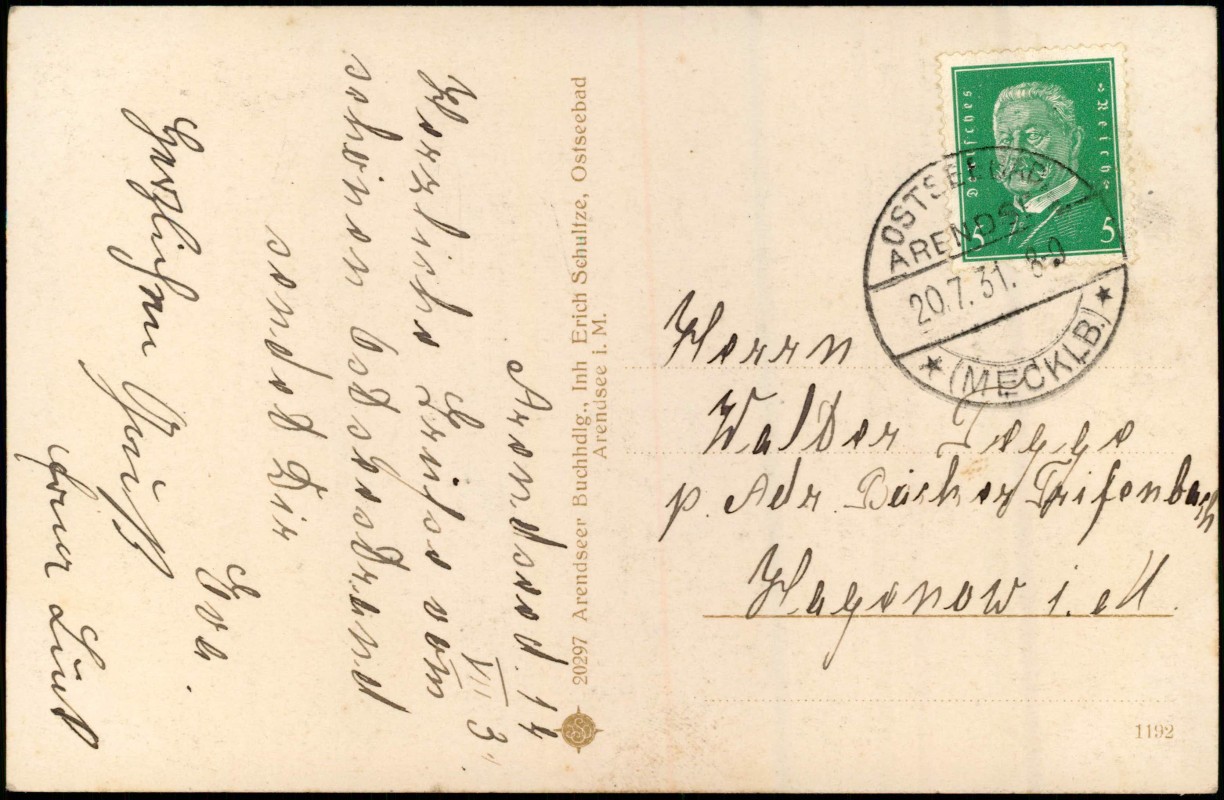 Arendsee d. 14
VII 31
Herzliche Grüße vom
schönen Ostseestrand
sendet Dir
Eva.
Herzlichen Gruß
20297 Arendseer Buchhdlg., Inh Erich Schultze, Ostseebad
Arendsee i. M.
Deutsches Reich
5 5
OSTSEEBAD
ARENDSEE
20.7.31. 8-9
(MECKLB.)
Herrn
Walter Jegge
p. Adr. Bäcker
Hagenow i. M.
1192